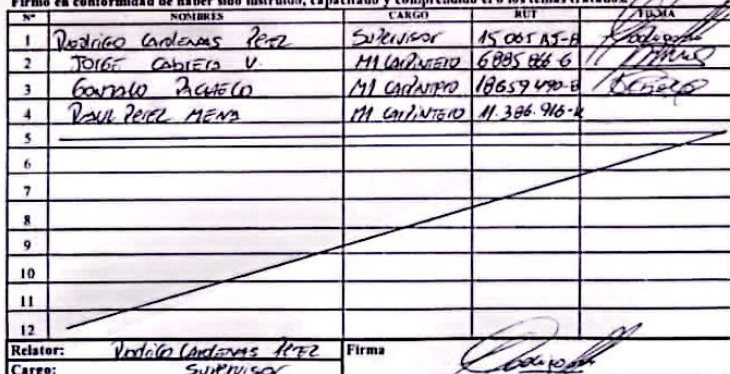 Firmo en conformidad de haber sido instruido, capacitado y comprendido el o los temas tratados.
Nº NOMBRES CARGO RUT FIRMA
1 Rodrigo Cardenas Perez Supervisor
2 JORGE CABRERA V. M1 CARPINTERO 6885866-6
3 GONZALO PACHECO M1 CARPINTERO 18659490-8
4 RAUL PEREZ MENA M1 CARPINTERO 11.386.916-K
5
6
7
8
9
10
11
12
Relator: Rodrigo CARDENAS PEREZ Firma
Cargo: Supervisor